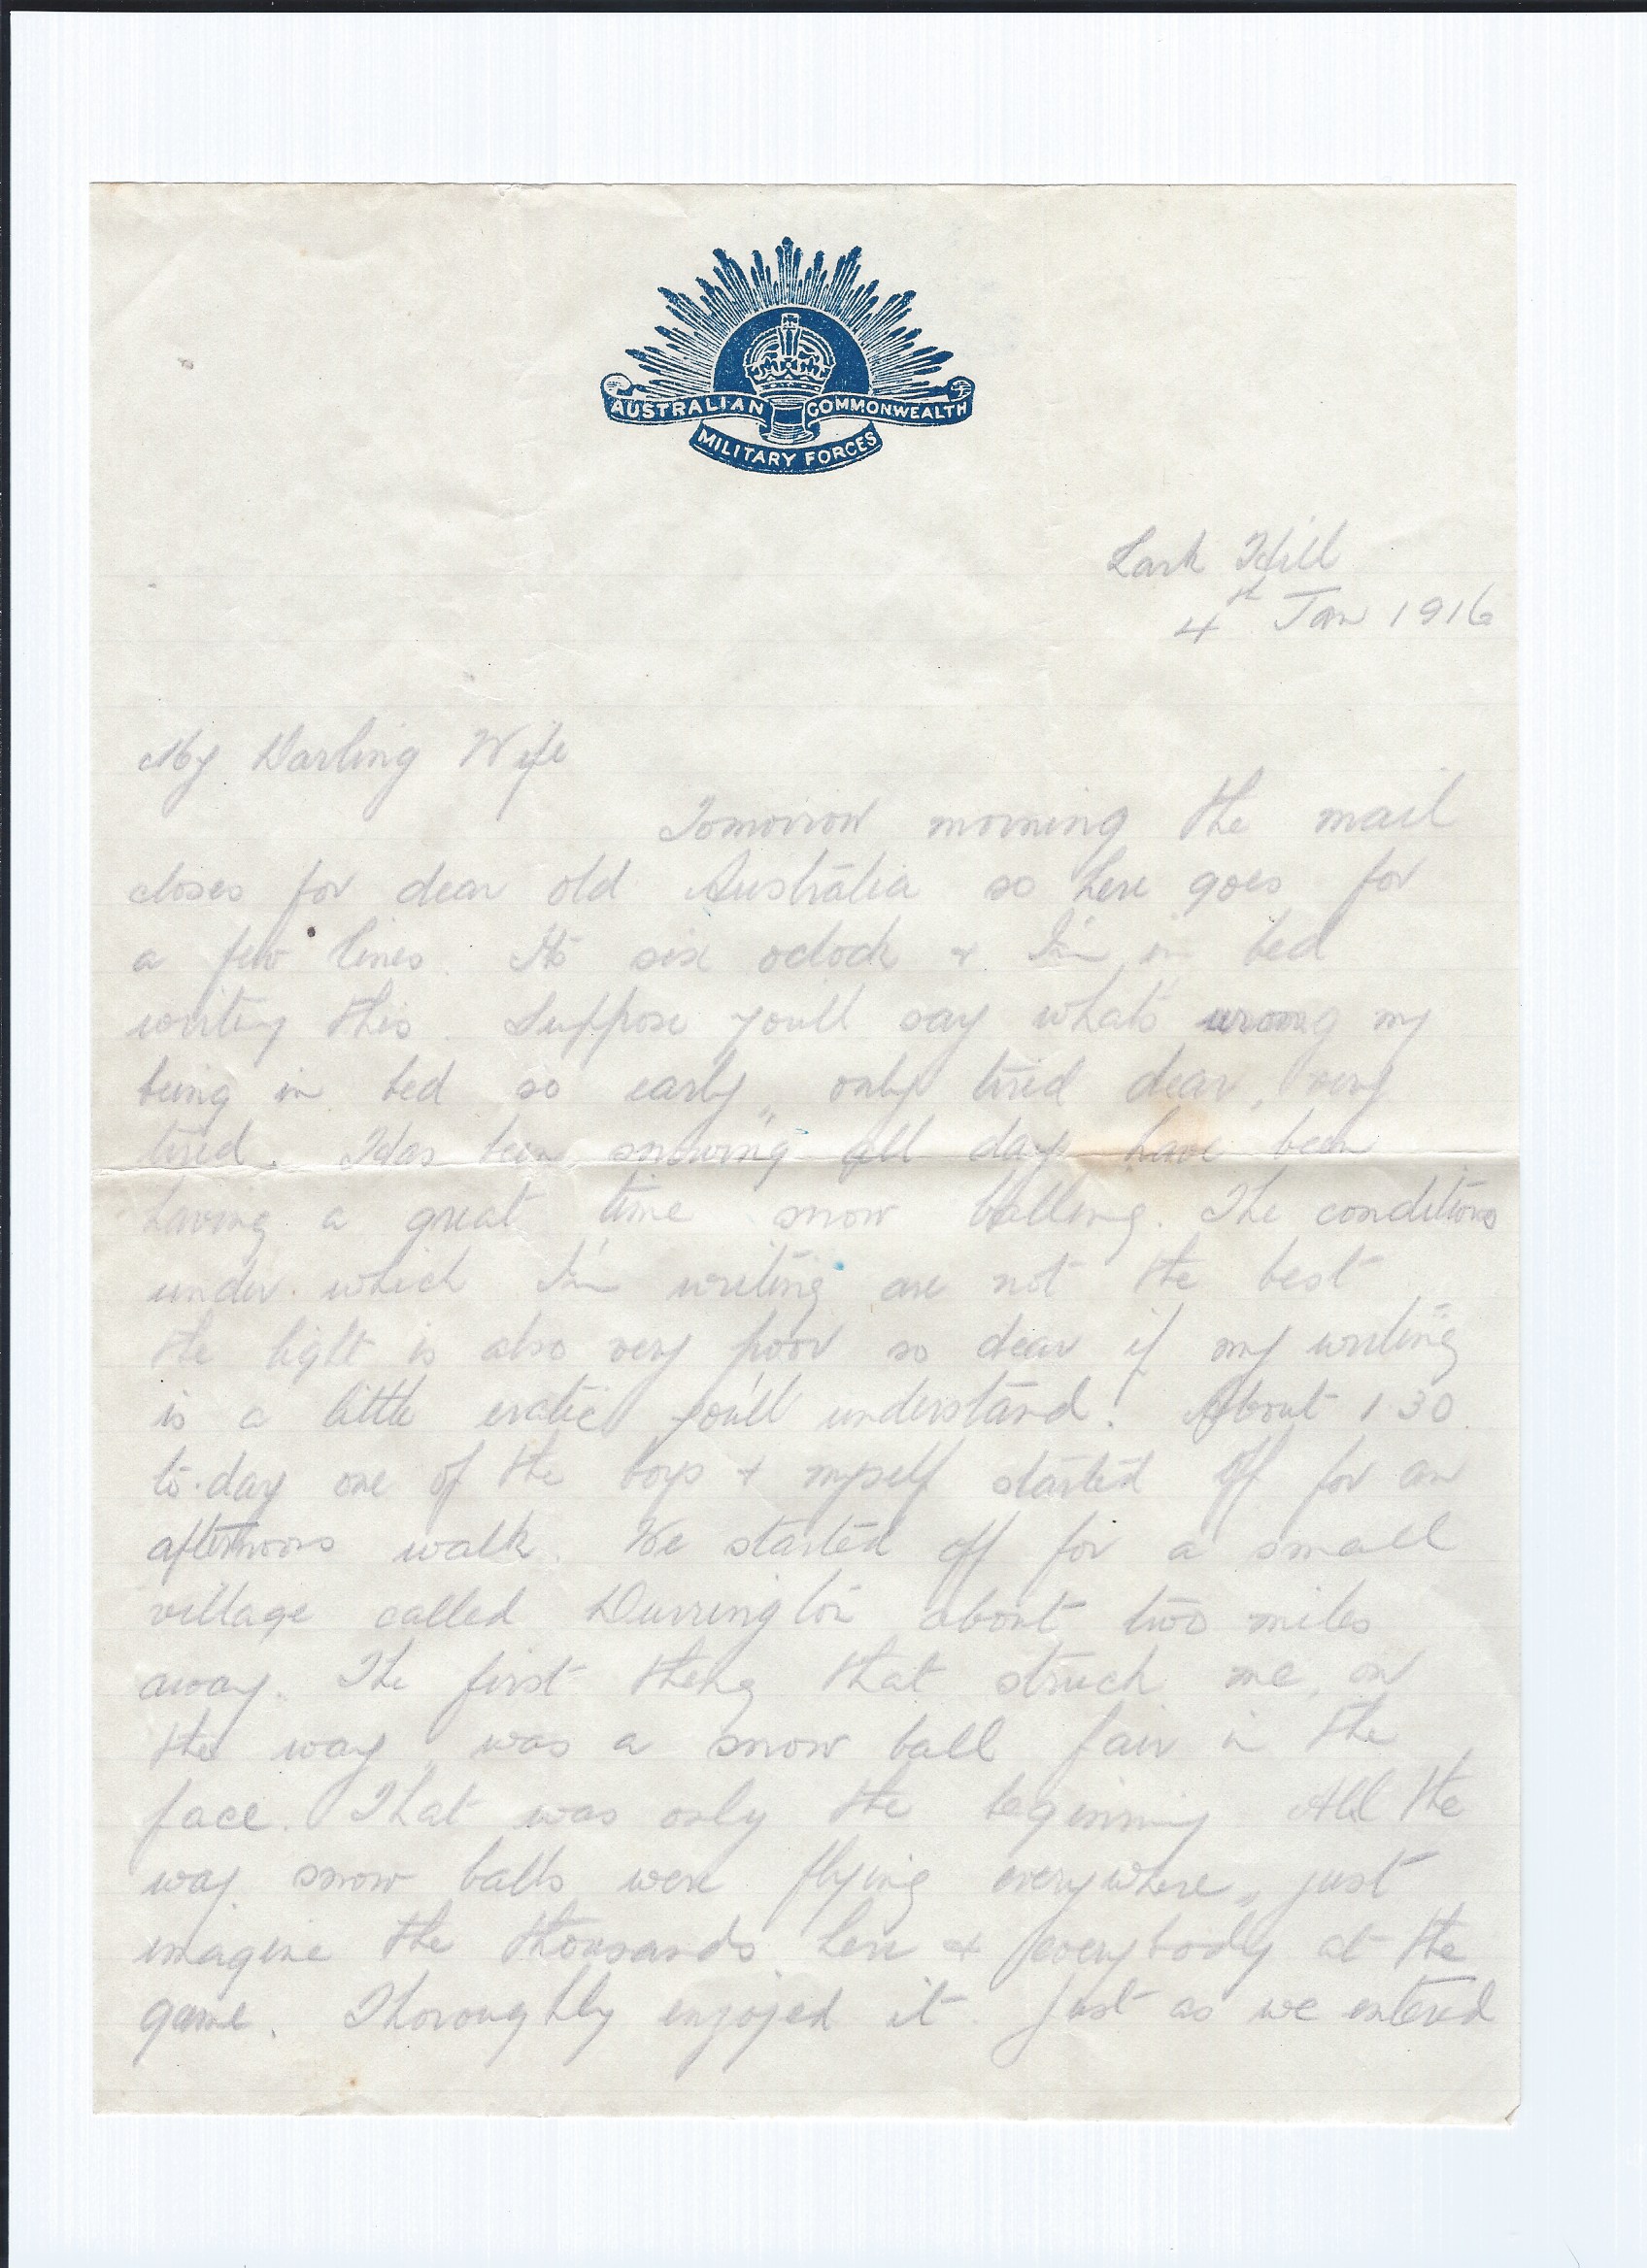 AUSTRALIAN COMMONWEALTH
MILITARY FORCES
Lark Hill
4th Jan 1916
My Darling Wife
Tomorrow morning the mail
closes for dear old Australia so here goes for
a few lines. Its six oclock & I'm in bed
writing this. Suppose you'll say whats wrong my
being in bed so early, only tired dear, very
tired. Has been snowing all day have been
having a great time snow balling. The conditions
under which I'm writing are not the best
the light is also very poor so dear if my writing
is a little eratic you'll understand! About 1.30
to-day one of the boys & myself started off for an
afternoons walk. We started off for a small
village called Durrington about two miles
away. The first thing that struck me, on
the way, was a snow ball fair in the
face. That was only the beginning All the
way snow balls were flying everywhere, just
imagine the thousands here & everybody at the
game. Thoroughly enjoyed it. Just as we entered